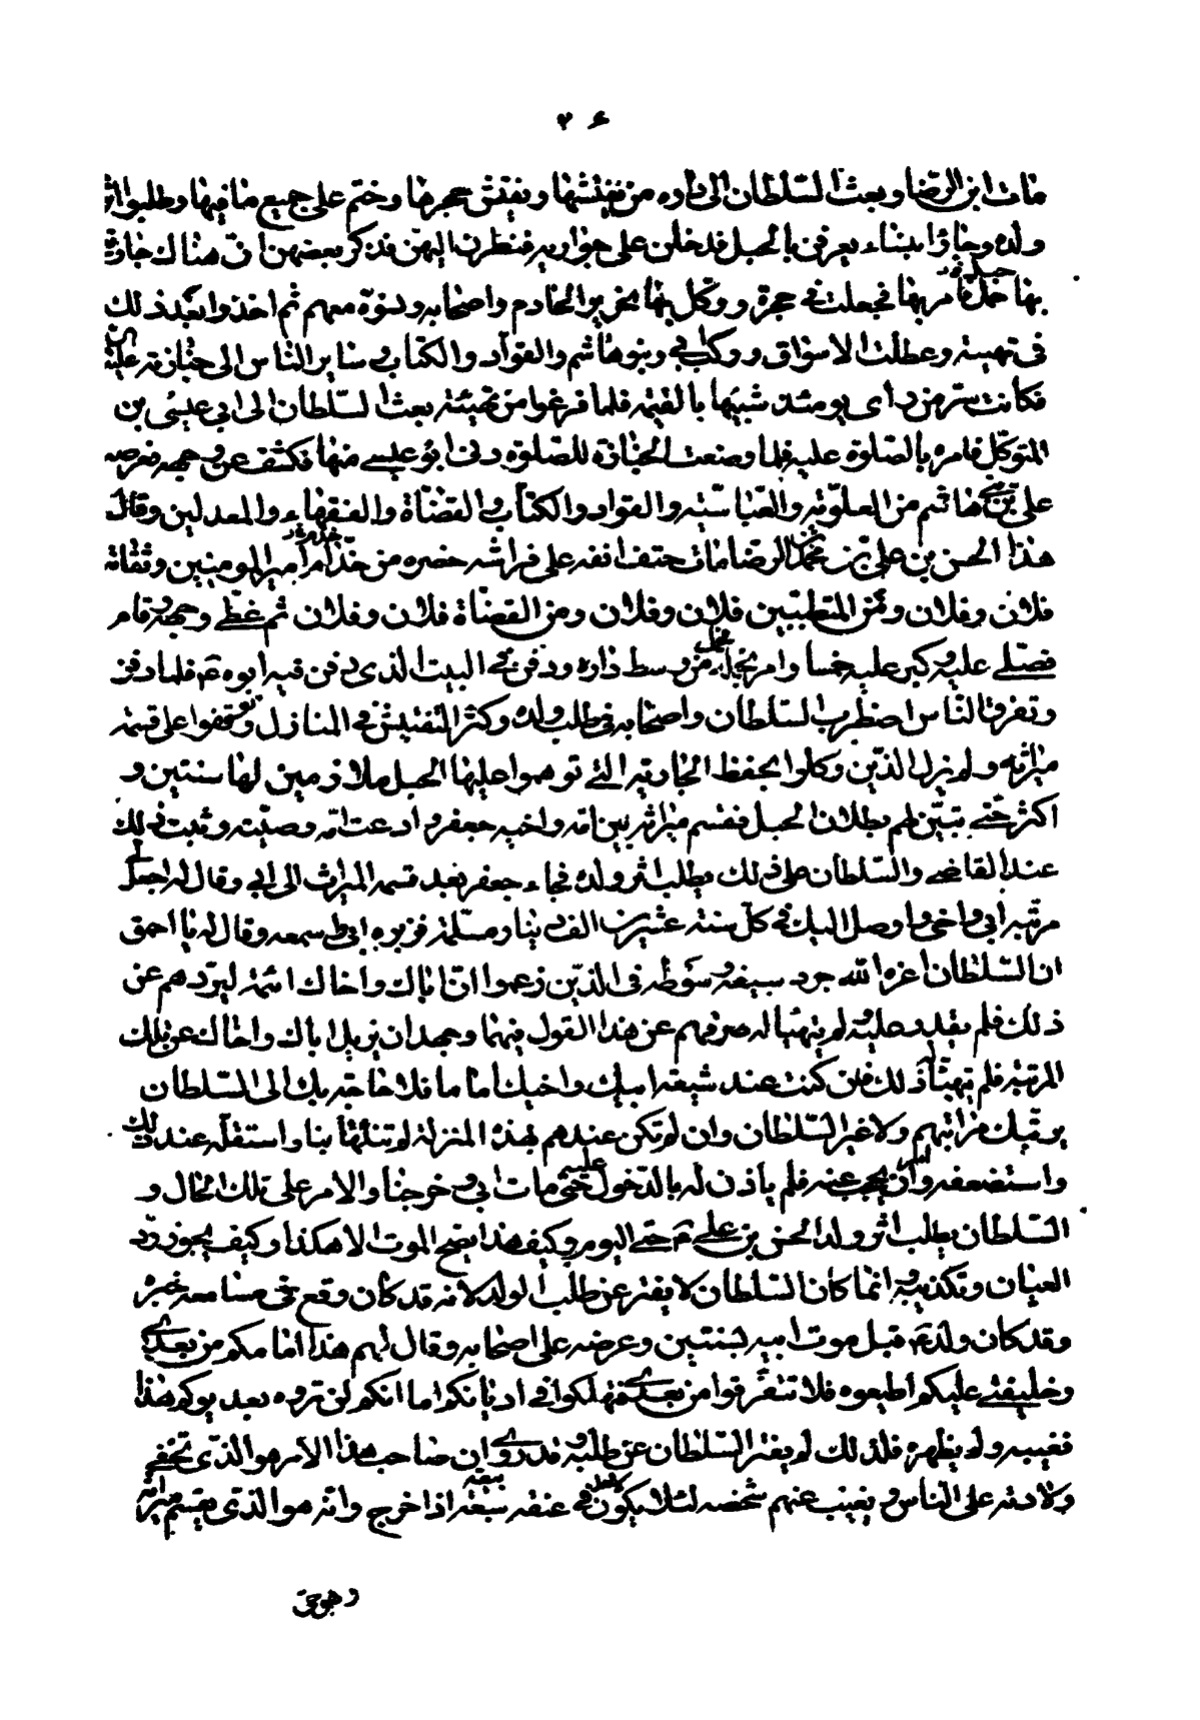 ٢٤
مات ابن الرضا وبعث السلطان الى داره من يفتشها ويفتش حجرها وختم على جميع ما فيها وطلبوا اثر
ولده وجاؤا بنساء يعرفن بالحبل فدخلن على جواريه فنظرن اليهن فذكر بعضهن ان هناك جارية
بها حمل فامر بها فجعلت فى حجرة ووكل بها نحرير الخادم واصحابه ونسوة معهم ثم اخذوا بعد ذلك
فى تهيئته وعطلت الاسواق وركب ابي وبنو هاشم والقواد والكتاب وساير الناس الى جنازته عليه السلم
فكانت سر من راى يومئذ شبيها بالقيمة فلما فرغوا من تهيئته بعث السلطان الى ابي عيسى بن
المتوكل فامره بالصلوة عليه فلما وضعت الجنازة للصلوة دنى ابو عيسى منها فكشف عن وجهه فعرضه
على بني هاشم من العلوية والعباسية والقواد والكتاب والقضاة والفقهاء والمعدلين وقال
هذا الحسن بن علي بن محمد بن الرضا مات حتف انفه على فراشه حضره من خدم امير المومنين وثقاته
فلان وفلان ومن المتطببين فلان وفلان ومن القضاة فلان وفلان ثم غطى وجهه وقام
فصلى عليه وكبر عليه خمسا وامر بحمله فحمل من وسط داره ودفن فى البيت الذى دفن فيه ابوه عم فلما دفن
وتفرق الناس اضطرب السلطان واصحابه فى طلب ولده وكثر التفتيش فى المنازل وتوقفوا على قسمة
ميراثه ولم يزل الذين وكلوا بحفظ الجارية التى توهموا عليها الحبل ملازمين لها سنتين و
اكثر حتى تبين لهم بطلان الحبل فقسم ميراثه بين امه واخيه جعفر وادعت امه وصيته وثبت ذلك
عند القاضى والسلطان على ذلك يطلب اثر ولده فجاء جعفر بعد قسمه الميراث الى ابي وقال له اجعل لى
مرتبة ابي واخي واوصل اليك فى كل سنة عشرين الف دينار مسلمة فزبره ابي واسمعه وقال له يا احمق
ان السلطان اعزه الله جرد سيفه وسوطه فى الذين زعموا ان اباك واخاك ائمة ليردهم عن
ذلك فلم يقدر عليه ولم يتهيا له صرفهم عن هذا القول فيهما وجهد ان يزيل اباك واخاك عن تلك
المرتبة فلم يتهيا ذلك فان كنت عند شيعة ابيك واخيك اماما فلا حاجة بك الى السلطان
يرتبك مراتبهم ولا غير السلطان وان لم تكن عندهم بهذه المنزلة لم تنلها بنا واستقله عند ذلك
واستضعفه وامر ان يحجب عنه فلم ياذن له بالدخول عليه حتى مات ابي وخرجنا والامر على تلك الحال و
السلطان يطلب اثر ولد الحسن بن علي عم حتى اليوم وكيف هذا يصح الموت الا هكذا وكيف يجوز رد
العيان وتكذيبه وانما كان السلطان لا يفتر عن طلب الولد لانه قد كان وقع فى مسامعه خبره
وقد كان ولد عم قبل موت ابيه بسنتين وعرضه على اصحابه وقال لهم هذا امامكم من بعدى
وخليفتى عليكم اطيعوه فلا تتفرقوا من بعدى فتهلكوا فى اديانكم اما انكم لن تروه بعد يومكم هذا
فغيبه ولم يظهره فلذلك لم يفتر السلطان عن طلبه وقد روى ان صاحب هذا الامر هو الذى تخفى
ولادته على الناس ويغيب عنهم شخصه لئلا يكون لاحد فى عنقه بيعة اذا خرج وانه هو الذى يقسم ميراثه
وهو حى